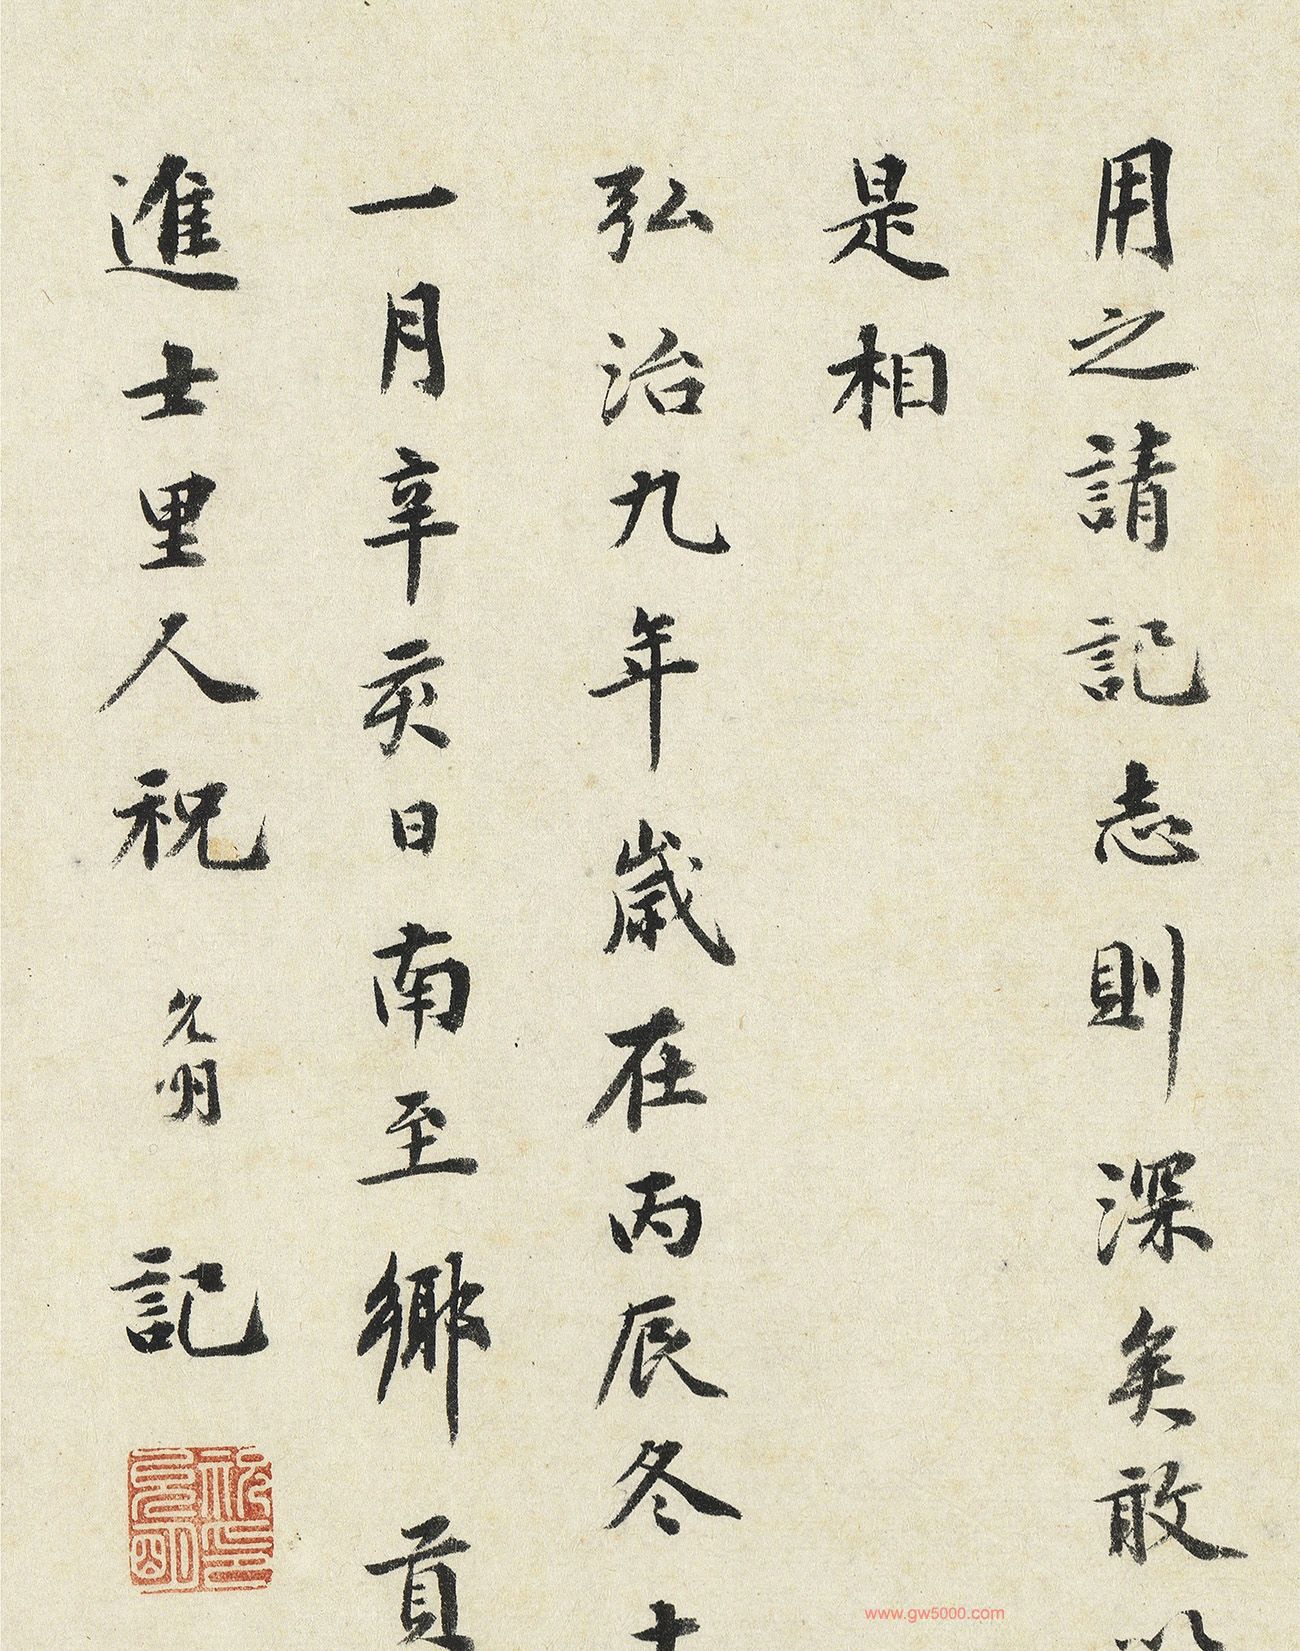 用之請記志則深矣敢以
是相
弘治九年歲在丙辰冬十
一月辛亥日南至鄉貢
進士里人祝允明記
祝允明印
www.gw5000.com